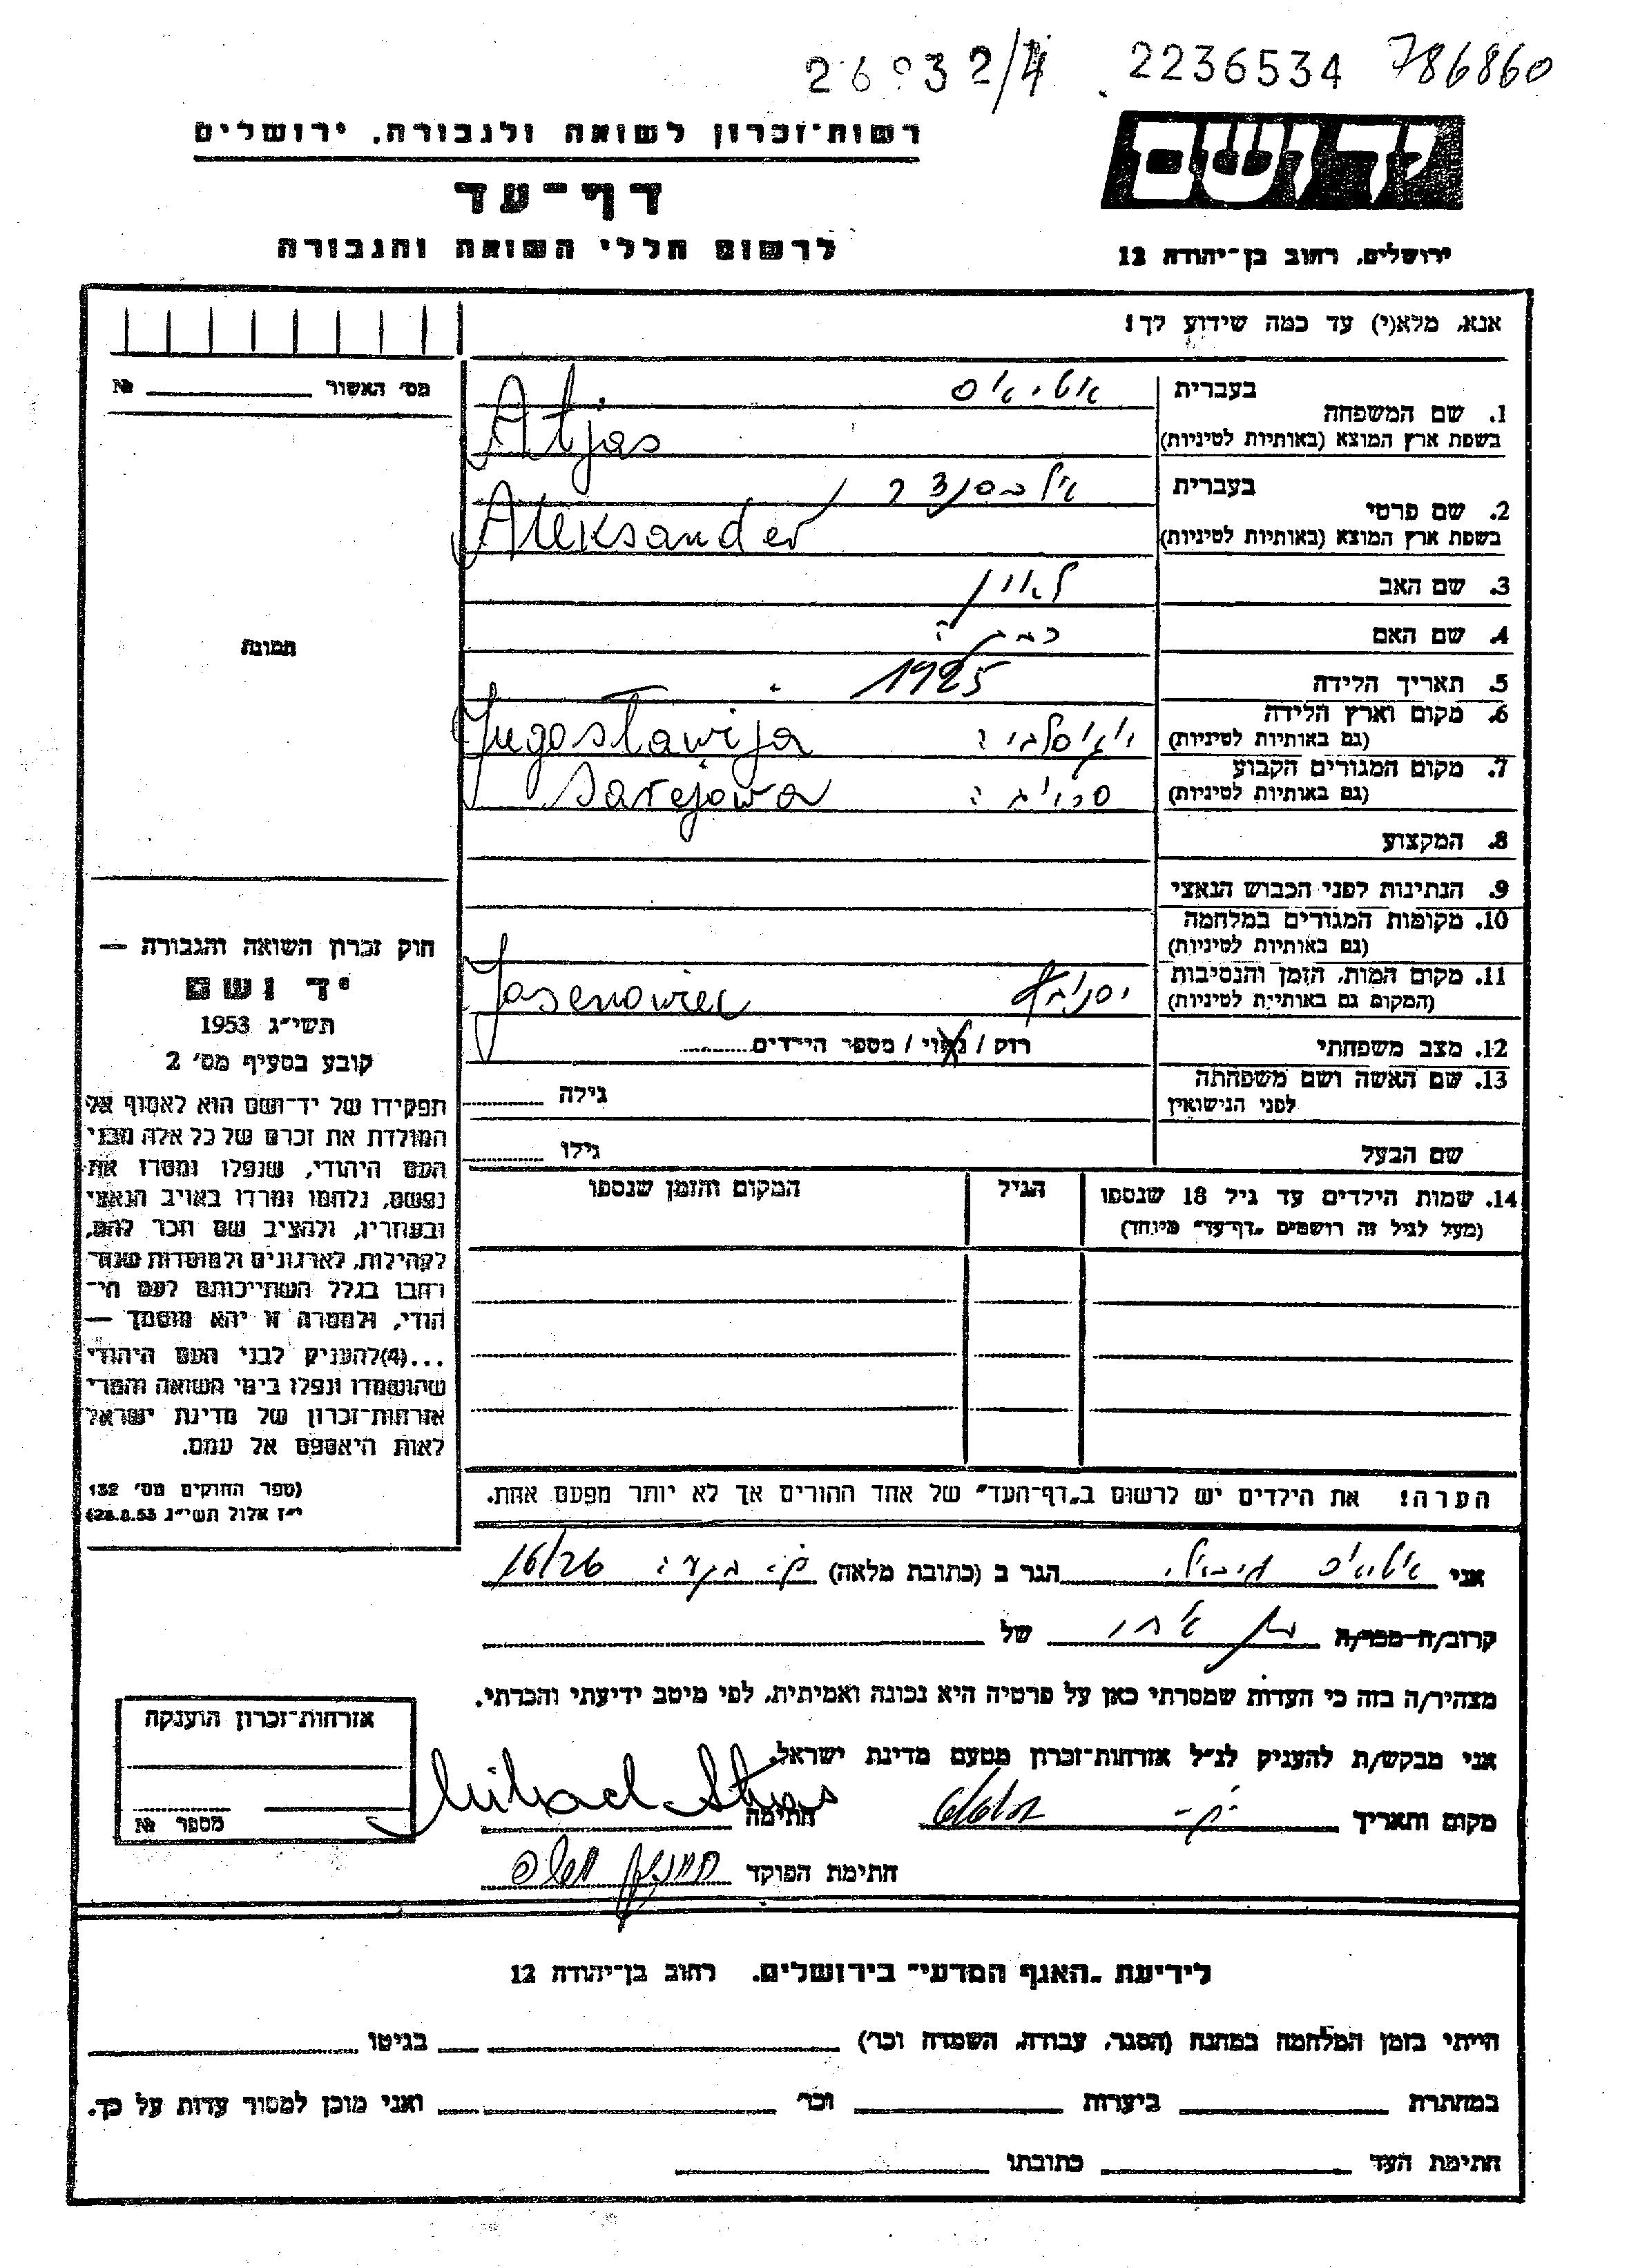 26032/4 2236534 786860
רשות־זכרון לשואה ולגבורה, ירושלים
יד ושם
דף־עד
לרשום חללי השואה והגבורה
ירושלים, רחוב בן־יהודה 12
אנא, מלא(י) עד כמה שידוע לך!
מס׳ האשור №
1. שם המשפחה בעברית אטיאס
בשפת ארץ המוצא (באותיות לטיניות) Atjas
2. שם פרטי בעברית אלכסנדר
בשפת ארץ המוצא (באותיות לטיניות) Aleksander
3. שם האב לאון
4. שם האם
5. תאריך הלידה 1925
6. מקום וארץ הלידה (גם באותיות לטיניות) יוגוסלביה Jugoslawija
7. מקום המגורים הקבוע (גם באותיות לטיניות) Sarejowa
8. המקצוע
9. הנתינות לפני הכבוש הנאצי
10. מקומות המגורים במלחמה (גם באותיות לטיניות)
11. מקום המות, הזמן והנסיבות (המקום גם באותיות לטיניות) Jasenowiec
12. מצב משפחתי רוק / נשוי / מספר הילדים
13. שם האשה ושם משפחתה לפני הנישואין גילה
שם הבעל גילו
14. שמות הילדים עד גיל 18 שנספו הגיל המקום והזמן שנספו
(מעל לגיל זה רושמים „דף־עד״ מיוחד)
הערה! את הילדים יש לרשום ב„דף־העד״ של אחד ההורים אך לא יותר מפעם אחת.
תמונה
חוק זכרון השואה והגבורה —
יד ושם
תשי״ג 1953
קובע בסעיף מס׳ 2
תפקידו של יד־ושם הוא לאסוף אל
המולדת את זכרם של כל אלה מבני
העם היהודי, שנפלו ומסרו את
נפשם, נלחמו ומרדו באויב הנאצי
ובעוזריו, ולהציב שם וזכר להם,
לקהילות, לארגונים ולמוסדות שנח־
רבו בגלל השתייכותם לעם הי־
הודי, ולמטרה זו יהא מוסמך —
...(4)להעניק לבני העם היהודי
שהושמדו ונפלו בימי השואה והמרי
אזרחות־זכרון של מדינת ישראל
לאות היאספם אל עמם.
(ספר החוקים מס׳ 132
י״ז אלול תשי״ג 28.8.53)
אני הגר ב (כתובת מלאה) 16/26
קרוב/ה מכר/ה של
מצהיר/ה בזה כי העדות שמסרתי כאן על פרטיה היא נכונה ואמיתית, לפי מיטב ידיעתי והכרתי.
אני מבקש/ת להעניק לנ״ל אזרחות־זכרון מטעם מדינת ישראל.
מקום ותאריך חתימה
חתימת הפוקד
אזרחות־זכרון הוענקה
מספר №
לידיעת „האגף המדעי״ בירושלים, רחוב בן־יהודה 12
הייתי בזמן המלחמה במחנה (הסגר, עבודה, השמדה וכו׳) בגיטו
במחתרת ביערות וכו׳ ואני מוכן למסור עדות על כך.
חתימת העד כתובתו